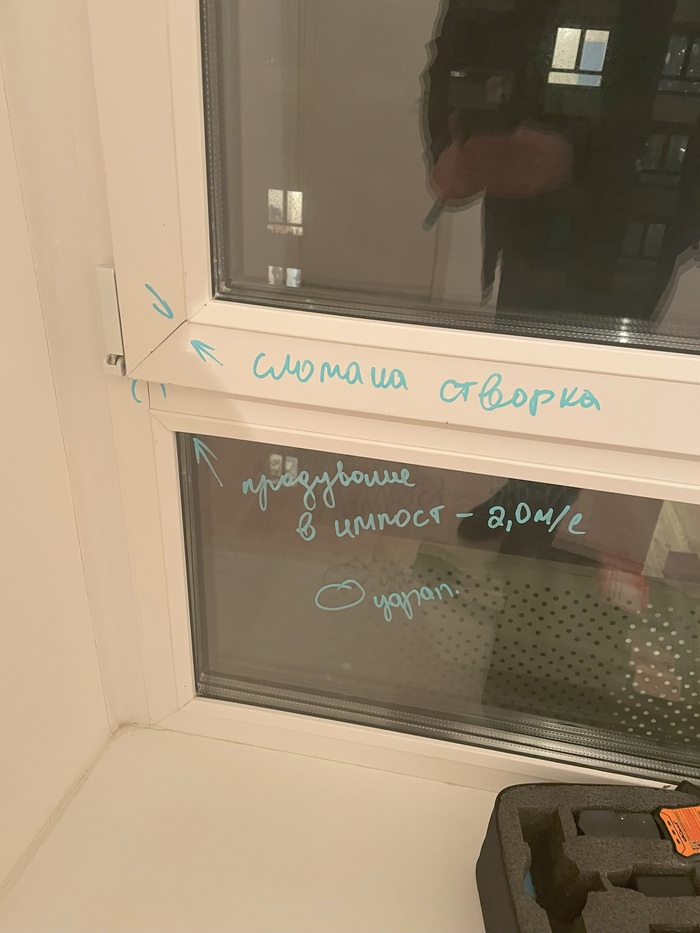 сломана створка
продувание
в импост - 2,0м/с
царап.